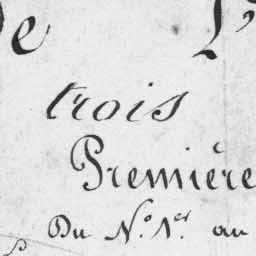 de
trois
Première
Du N.° 1.er au